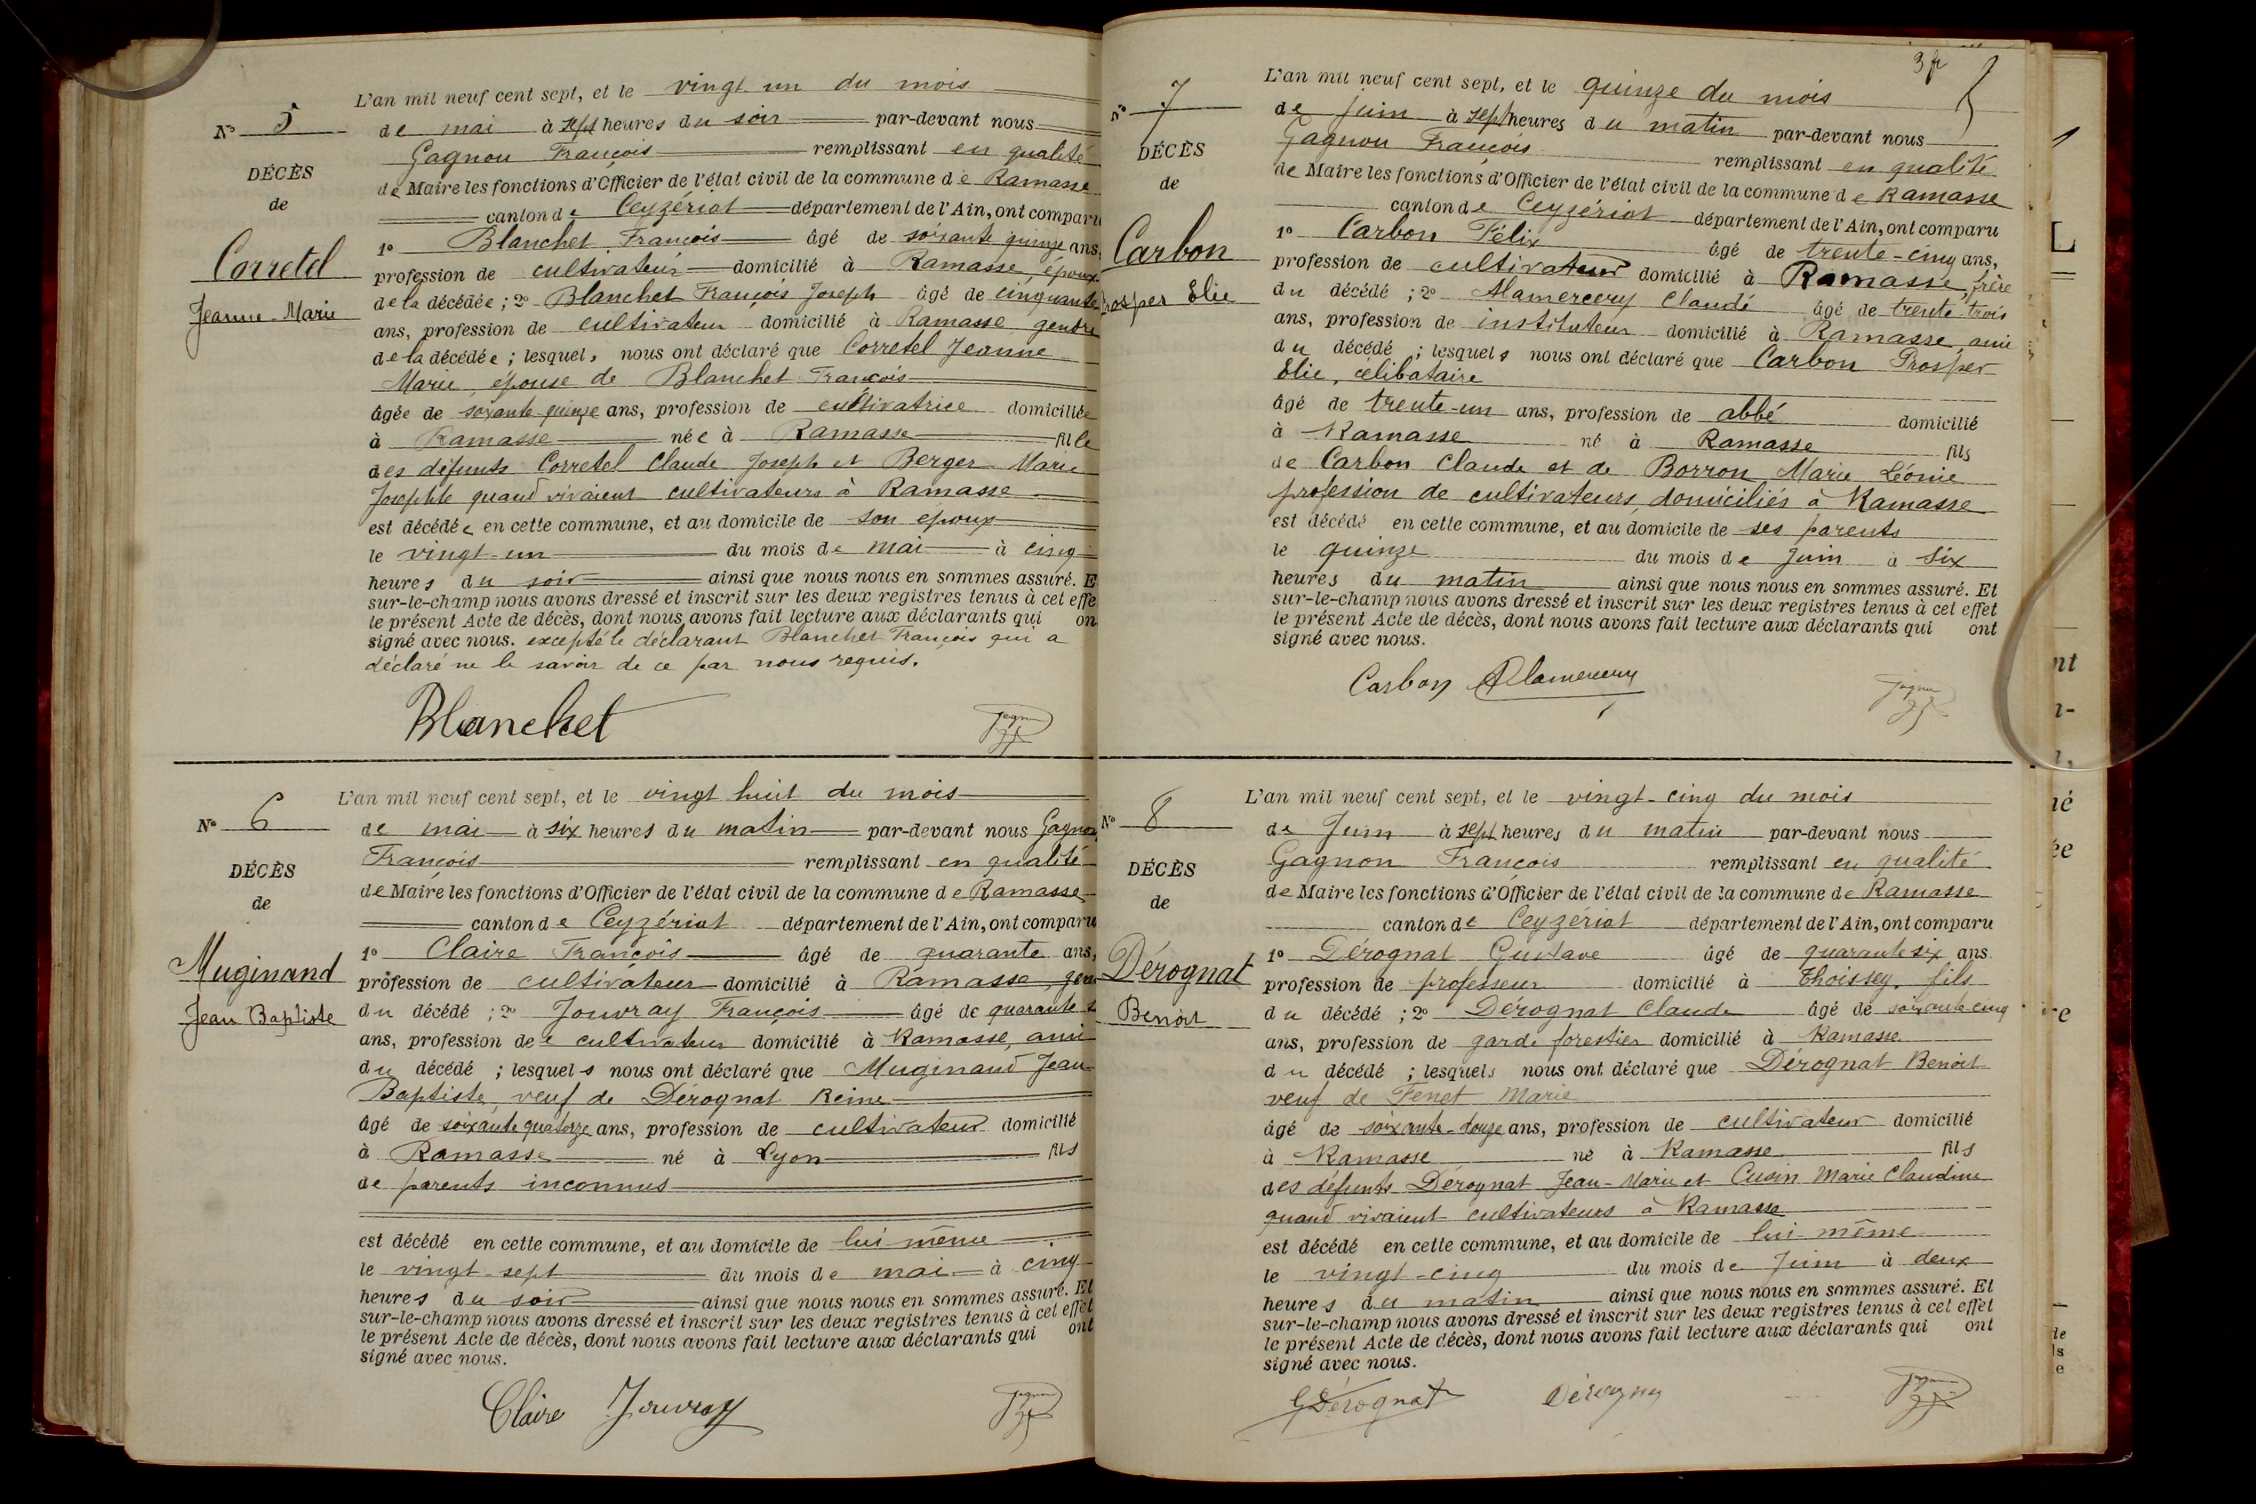 N° 5
DÉCÈS
de
Corretel
Jeanne-Marie
L'an mil neuf cent sept, et le vingt un du mois
de mai à sept heures du soir par-devant nous
Gagnon François remplissant en qualité
de Maire les fonctions d'Officier de l'état civil de la commune de Ramasse
canton de Ceyzériat département de l'Ain, ont comparu
1° Blanchet François âgé de soixante quinze ans,
profession de cultivateur domicilié à Ramasse, époux
de la décédée ; 2° Blanchet François Joseph âgé de cinquante
ans, profession de cultivateur domicilié à Ramasse gendre
de la décédée ; lesquels nous ont déclaré que Corretel Jeanne
Marie, épouse de Blanchet François
âgée de soixante-quinze ans, profession de cultivatrice domiciliée
à Ramasse née à Ramasse fille
des défunts Corretel Claude Joseph et Berger Marie
Josephte quand vivaient cultivateurs à Ramasse
est décédée en cette commune, et au domicile de son epoux
le vingt-un du mois de mai à cinq
heures du soir ainsi que nous nous en sommes assuré. E
sur-le-champ nous avons dressé et inscrit sur les deux registres tenus à cet effe
le présent Acte de décès, dont nous avons fait lecture aux déclarants qui on
signé avec nous. excepté le déclarant Blanchet François qui a
déclaré ne le savoir de ce par nous requis.
Blanchet
N° 6
DÉCÈS
de
Muginand
Jean Baptiste
L'an mil neuf cent sept, et le vingt huit du mois
de mai à six heures du matin par-devant nous Gagnon
François remplissant en qualité
de Maire les fonctions d'Officier de l'état civil de la commune de Ramasse
canton de Ceyzériat département de l'Ain, ont comparu
1° Claire François âgé de quarante ans,
profession de cultivateur domicilié à Ramasse,
du décédé ; 2° Jouvray François âgé de quarante
ans, profession de cultivateur domicilié à Ramasse, ami
du décédé ; lesquels nous ont déclaré que Muginand Jean
Baptiste, veuf de Dérognat Reine
âgé de soixante quatorze ans, profession de cultivateur domicilié
à Ramasse né à Lyon fils
de parents inconnus
est décédé en cette commune, et au domicile de lui même
le vingt-sept du mois de mai à cinq
heures du soir ainsi que nous nous en sommes assuré. Et
sur-le-champ nous avons dressé et inscrit sur les deux registres tenus à cet effet
le présent Acte de décès, dont nous avons fait lecture aux déclarants qui ont
signé avec nous.
Claire Jouvray
3
N° 7
DÉCÈS
de
Carbon
Prosper Elie
L'an mil neuf cent sept, et le quinze du mois
de juin à sept heures du matin par-devant nous
Gagnon François remplissant en qualité
de Maire les fonctions d'Officier de l'état civil de la commune de Ramasse
canton de Ceyzériat département de l'Ain, ont comparu
1° Carbon Félix âgé de trente-cinq ans,
profession de cultivateur domicilié à Ramasse, frère
du décédé ; 2° Alamercery Claude âgé de trente-trois
ans, profession de instituteur domicilié à Ramasse, ami
du décédé ; lesquels nous ont déclaré que Carbon Prosper
Elie, célibataire
âgé de trente-un ans, profession de abbé domicilié
à Ramasse né à Ramasse fils
de Carbon Claude et de Borron Marie Léonie
profession de cultivateurs, domiciliés à Ramasse
est décédé en cette commune, et au domicile de ses parents
le quinze du mois de Juin à six
heures du matin ainsi que nous nous en sommes assuré. Et
sur-le-champ nous avons dressé et inscrit sur les deux registres tenus à cet effet
le présent Acte de décès, dont nous avons fait lecture aux déclarants qui ont
signé avec nous.
Carbon Alamercery Gagnon
N° 8
DÉCÈS
de
Dérognat
Benoit
L'an mil neuf cent sept, et le vingt-cinq du mois
de Juin à sept heures du matin par-devant nous
Gagnon François remplissant en qualité
de Maire les fonctions d'Officier de l'état civil de la commune de Ramasse
canton de Ceyzériat département de l'Ain, ont comparu
1° Dérognat Gustave âgé de quarante six ans
profession de professeur domicilié à Thoissey. fils
du décédé ; 2° Dérognat Claude âgé de soixante cinq
ans, profession de garde forestier domicilié à Ramasse
du décédé ; lesquels nous ont déclaré que Dérognat Benoit
veuf de Fenet Marie
âgé de soixante-douze ans, profession de cultivateur domicilié
à Ramasse né à Ramasse fils
des défunts Dérognat Jean-Marie et Cusin Marie Claudine
quand vivaient cultivateurs à Ramasse
est décédé en cette commune, et au domicile de lui même
le vingt-cinq du mois de Juin à deux
heures du matin ainsi que nous nous en sommes assuré. Et
sur-le-champ nous avons dressé et inscrit sur les deux registres tenus à cet effet
le présent Acte de décès, dont nous avons fait lecture aux déclarants qui ont
signé avec nous.
G Dérognat